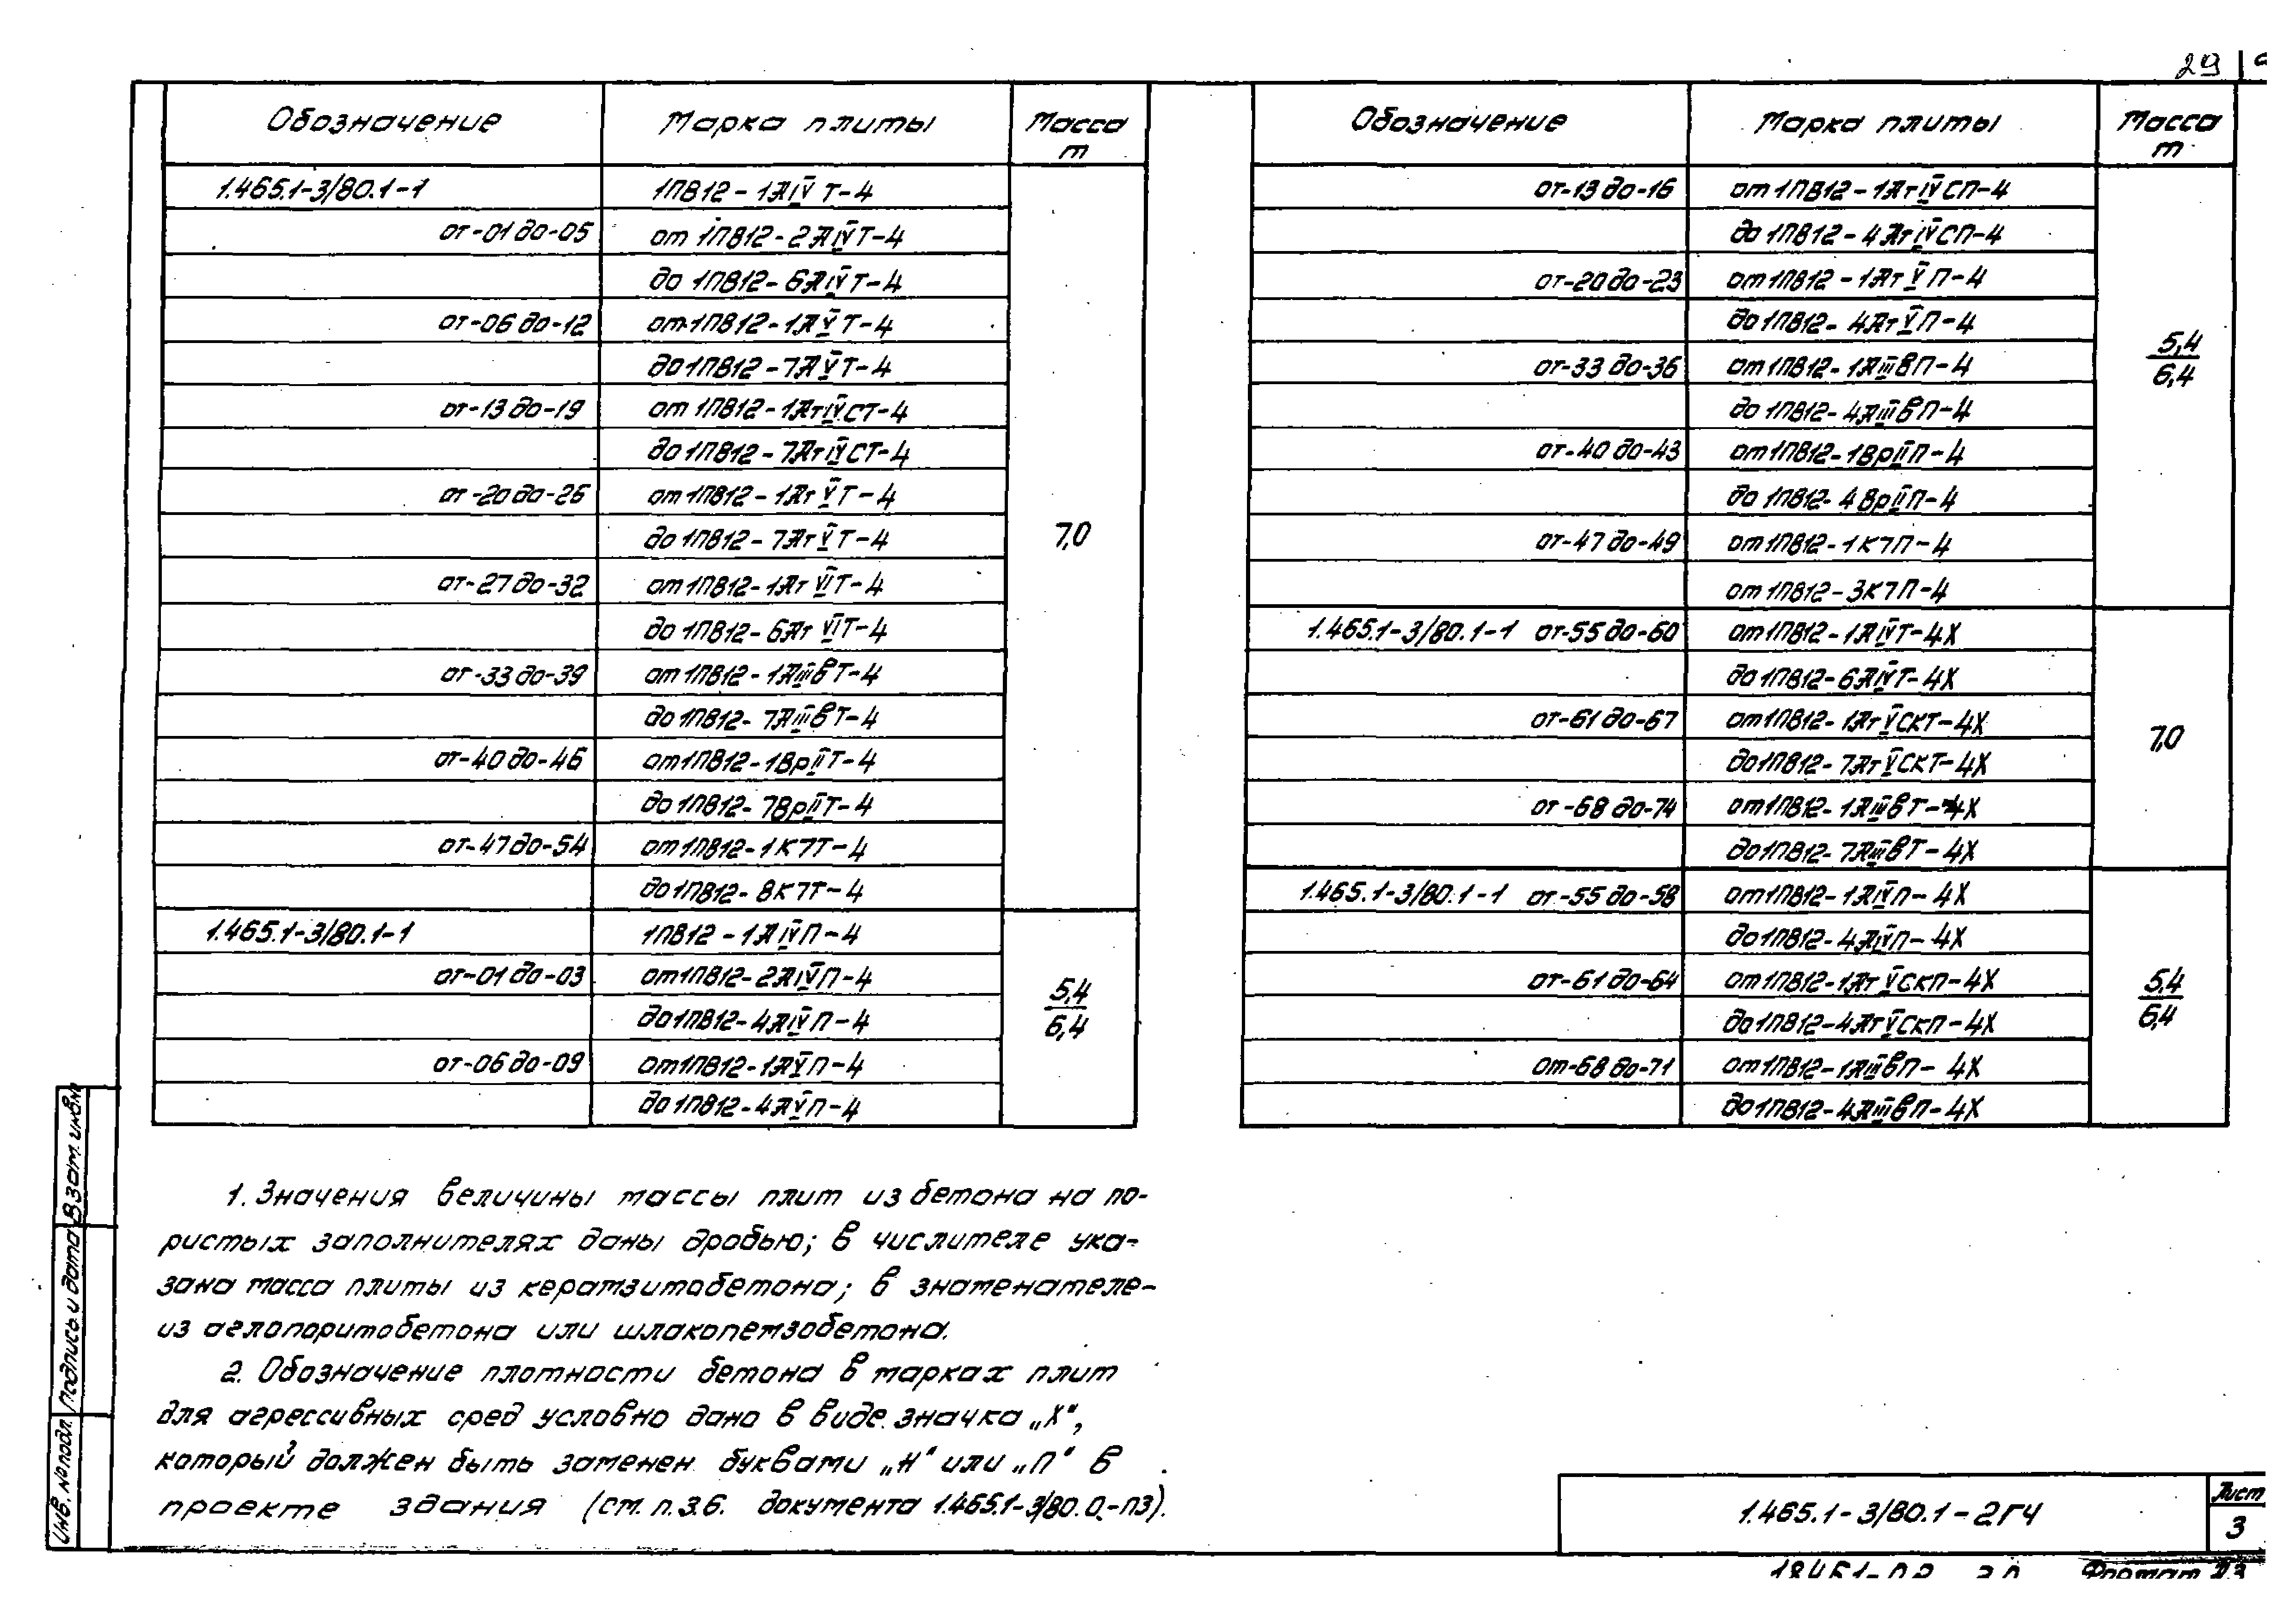 29
Обозначение Марка плиты Масса т
1.465.1-3/80.1-1 1ПВ12-1АIVТ-4
от-01 до-05 от 1ПВ12-2АIVТ-4
до 1ПВ12-6АIVТ-4
от-06 до-12 от 1ПВ12-1АVТ-4
до 1ПВ12-7АVТ-4
от-13 до-19 от 1ПВ12-1АтIVСТ-4
до 1ПВ12-7АтIVСТ-4
от-20 до-26 от 1ПВ12-1АтVТ-4
до 1ПВ12-7АтVТ-4
7,0
от-27 до-32 от 1ПВ12-1АтVIТ-4
до 1ПВ12-6АтVIТ-4
от-33 до-39 от 1ПВ12-1АIIIвТ-4
до 1ПВ12-7АIIIвТ-4
от-40 до-46 от 1ПВ12-1ВрIIТ-4
до 1ПВ12-7ВрIIТ-4
от-47 до-54 от 1ПВ12-1К7Т-4
до 1ПВ12-8К7Т-4
1.465.1-3/80.1-1 1ПВ12-1АIVП-4
от-01 до-03 от 1ПВ12-2АIVП-4
до 1ПВ12-4АIVП-4
5,4
6,4
от-06 до-09 от 1ПВ12-1АVП-4
до 1ПВ12-4АVП-4
Обозначение Марка плиты Масса т
от-13 до-16 от 1ПВ12-1АтIVСП-4
до 1ПВ12-4АтIVСП-4
от-20 до-23 от 1ПВ12-1АтVП-4
до 1ПВ12-4АтVП-4
5,4
6,4
от-33 до-36 от 1ПВ12-1АIIIвП-4
до 1ПВ12-4АIIIвП-4
от-40 до-43 от 1ПВ12-1ВрIIП-4
до 1ПВ12-4ВрIIП-4
от-47 до-49 от 1ПВ12-1К7П-4
от 1ПВ12-3К7П-4
1.465.1-3/80.1-1 от-55 до-60 от 1ПВ12-1АIVТ-4Х
до 1ПВ12-6АIVТ-4Х
от-61 до-67 от 1ПВ12-1АтVСКТ-4Х
7,0
до 1ПВ12-7АтVСКТ-4Х
от-68 до-74 от 1ПВ12-1АIIIвТ-4Х
до 1ПВ12-7АIIIвТ-4Х
1.465.1-3/80.1-1 от-55 до-58 от 1ПВ12-1АIVП-4Х
до 1ПВ12-4АIVП-4Х
от-61 до-64 от 1ПВ12-1АтVСКП-4Х
5,4
6,4
до 1ПВ12-4АтVСКП-4Х
от-68 до-71 от 1ПВ12-1АIIIвП-4Х
до 1ПВ12-4АIIIвП-4Х
1. Значения величины массы плит из бетона на по-
ристых заполнителях даны дробью; в числителе ука-
зана масса плиты из керамзитобетона; в знаменателе-
из аглопоритобетона или шлакопемзобетона.
2. Обозначение плотности бетона в марках плит
для агрессивных сред условно дано в виде значка „Х",
который должен быть заменен буквами „Н" или „П" в
проекте здания (см. п.3.6. документа 1.465.1-3/80.0-ПЗ).
Инв. № подл. Подпись и дата Взам. инв. №
1.465.1-3/80.1-2ГЧ
Лист
3
Формат А3